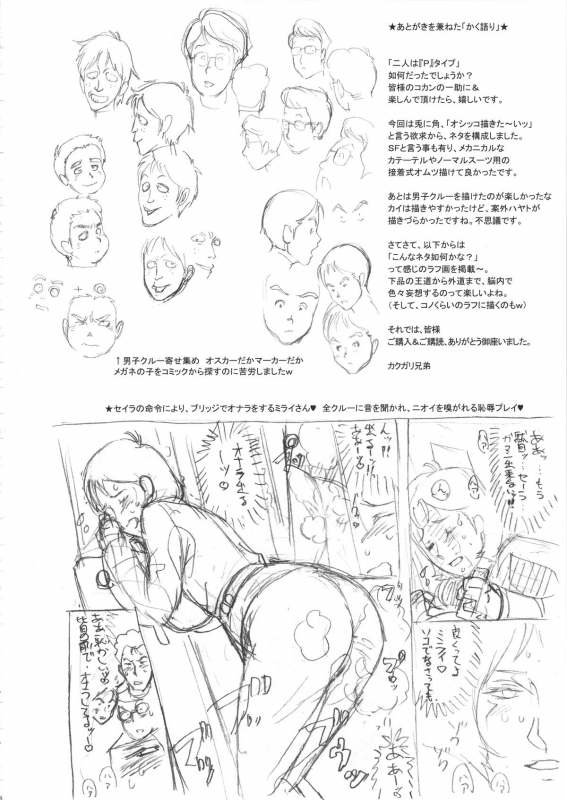 ★あとがきを兼ねた「かく語り」★
「二人は『P』タイプ」
如何だったでしょうか？
皆様のコカンの一助に＆
楽しんで頂けたら、嬉しいです。
今回は兎に角、「オシッコ描きた～いッ」
と言う欲求から、ネタを構成しました。
SFと言う事も有り、メカニカルな
カテーテルやノーマルスーツ用の
接着式オムツ描けて良かったです。
あとは男子クルーを描けたのが楽しかったな
カイは描きやすかったけど、案外ハヤトが
描きづらかったですね。不思議です。
さてさて、以下からは
「こんなネタ如何かな？」
って感じのラフ画を掲載～。
下品の王道から外道まで、脳内で
色々妄想するのって楽しいよね。
（そして、コノくらいのラフに描くのもw）
それでは、皆様
ご購入＆ご購読、ありがとう御座いました。
カクガリ兄弟
↑男子クルー寄せ集め　オスカーだかマーカーだか
メガネの子をコミックから探すのに苦労しましたw
★セイラの命令により、ブリッジでオナラをするミライさん♥　全クルーに音を聞かれ、ニオイを嗅がれる恥辱プレイ♥
ああッ…もう
駄目ッ…セーラ…
ガマン出来ない…!!
オーラ出る
ーッ♡
良くってよ
ミライ♡
ソコでなさっても
ハァ
ハァ